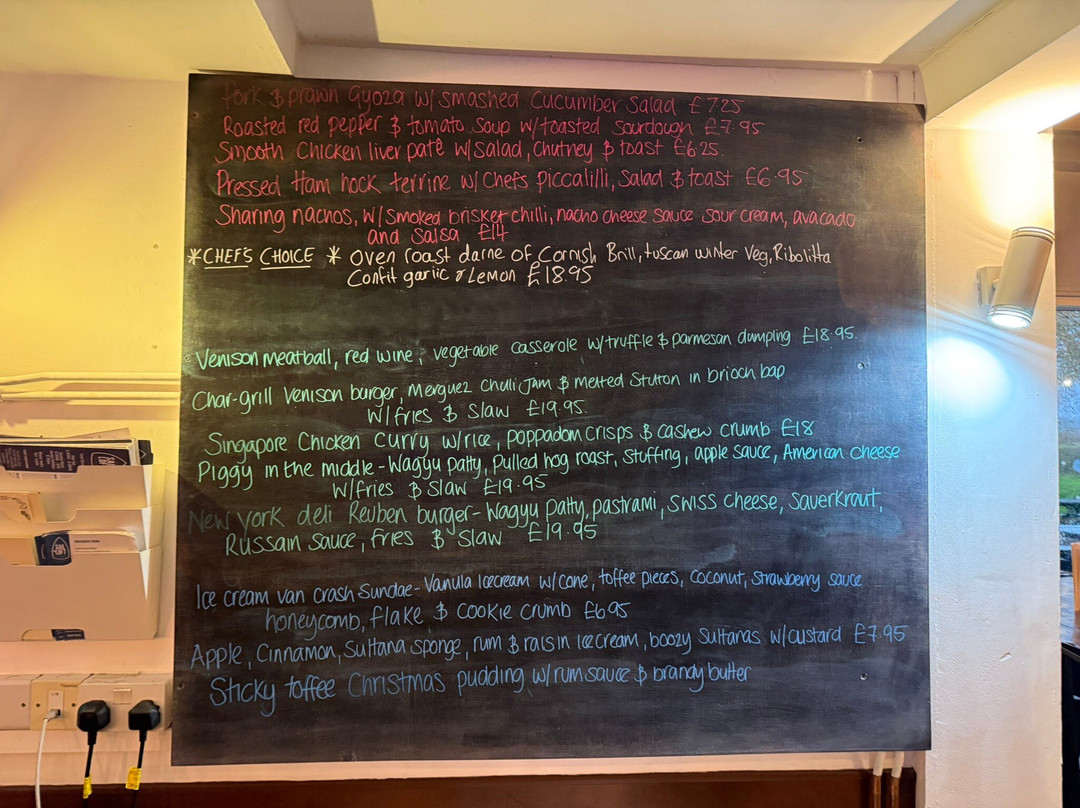 Pork & prawn Gyoza w/ smashed Cucumber Salad £7.25
Roasted red pepper & tomato Soup w/toasted Sourdough £7.95
Smooth Chicken liver paté w/Salad, Chutney & toast £6.25
Pressed Ham hock terrine w/ Chefs piccalilli, Salad & toast £6.95
Sharing nachos, w/ Smoked brisket chilli, nacho cheese sauce sour cream, avacado
and Salsa £14
*CHEF'S CHOICE * oven roast darne of Cornish Brill, tuscan winter Veg, Ribolitta
Confit garlic & Lemon £18.95
Venison meatball, red wine, vegetable casserole w/truffle & parmesan dumpling £18.95
Char-grill Venison burger, Merguez Chilli Jam & Melted Stilton in brioch bap
W/fries & Slaw £19.95
Singapore Chicken Curry w/rice, poppadom crisps & cashew crumb £18
Piggy in the middle - Wagyu patty, pulled hog roast, Stuffing, apple sauce, American cheese
W/fries & Slaw £19.95
New york deli Reuben burger - Wagyu patty, pastrami, Swiss cheese, Sauerkraut,
Russain Sauce, fries & Slaw £19.95
Ice cream van crash Sundae - Vanilla Icecream w/cone, toffee pieces, coconut, Strawberry sauce
honeycomb, flake & cookie crumb £6.95
Apple, Cinnamon, Sultana sponge, rum & raisin ice cream, boozy Sultanas w/custard £7.95
Sticky toffee Christmas pudding w/ rum sauce & brandy butter